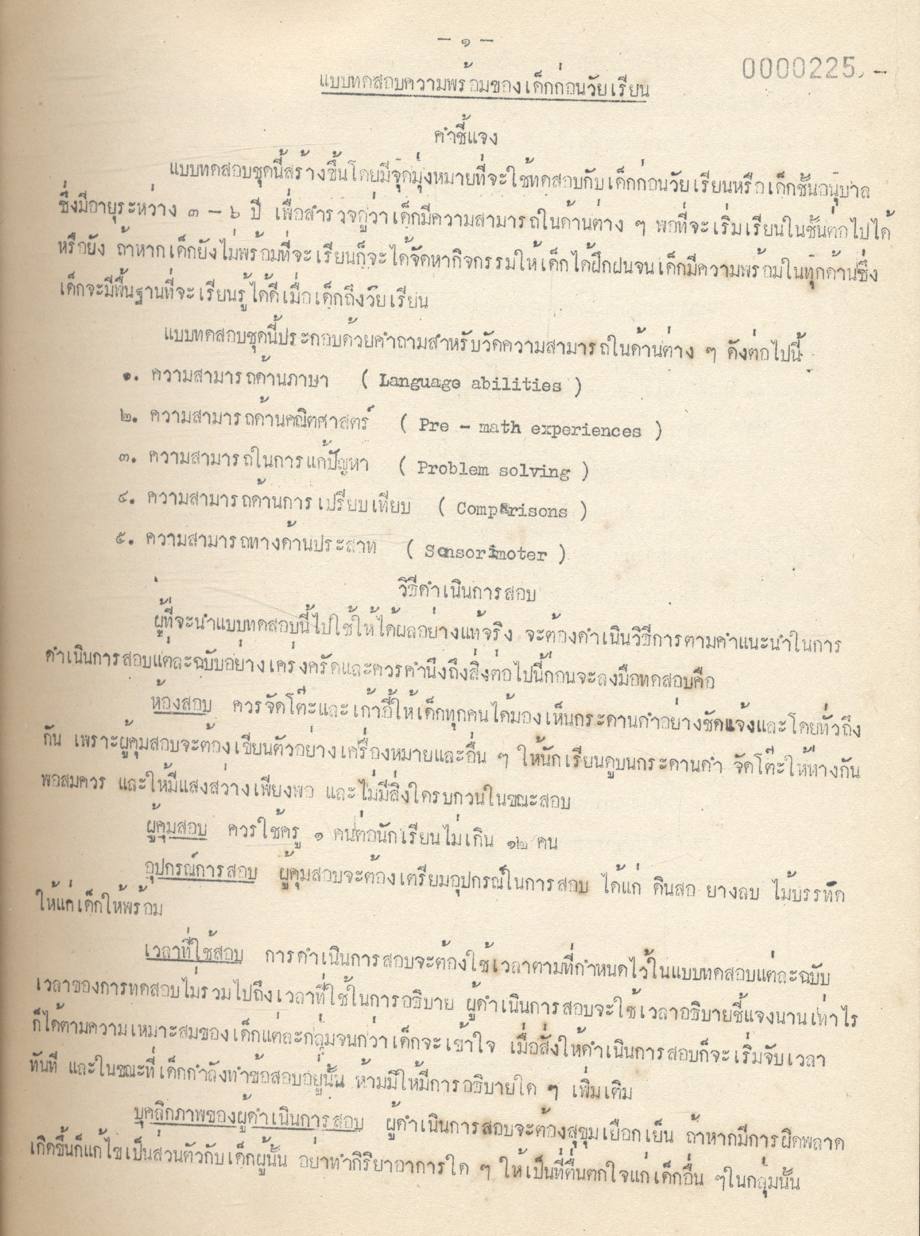 - ๑ -
0000225. -
แบบทดสอบความพร้อมของเด็กก่อนวัยเรียน
คำชี้แจง
แบบทดสอบชุดนี้สร้างขึ้นโดยมีจุดมุ่งหมายที่จะใช้ทดสอบกับเด็กก่อนวัยเรียนหรือเด็กชั้นอนุบาล
ซึ่งมีอายุระหว่าง ๓ - ๖ ปี เพื่อสำรวจดูว่าเด็กมีความสามารถในด้านต่าง ๆ พอที่จะเริ่มเรียนในชั้นต่อไปได้
หรือยัง ถ้าหากเด็กยังไม่พร้อมที่จะเรียนก็จะได้จัดหากิจกรรมให้เด็กได้ฝึกฝนจนเด็กมีความพร้อมในทุกด้านซึ่ง
เด็กจะมีพื้นฐานที่จะเรียนรู้ได้ดีเมื่อเด็กถึงวัยเรียน
แบบทดสอบชุดนี้ประกอบด้วยคำถามสำหรับวัดความสามารถในด้านต่าง ๆ ดังต่อไปนี้
๑. ความสามารถด้านภาษา ( Language abilities )
๒. ความสามารถด้านคณิตศาสตร์ ( Pre - math experiences )
๓. ความสามารถในการแก้ปัญหา ( Problem solving )
๔. ความสามารถด้านการเปรียบเทียบ ( Comparisons )
๕. ความสามารถทางด้านประสาท ( Sensorimoter )
วิธีดำเนินการสอบ
ผู้ที่จะนำแบบทดสอบนี้ไปใช้ให้ได้ผลอย่างแท้จริง จะต้องดำเนินวิธีการตามคำแนะนำในการ
ดำเนินการสอบแต่ละฉบับอย่างเคร่งครัดและควรคำนึงถึงสิ่งต่อไปนี้ก่อนจะลงมือทดสอบคือ
ห้องสอบ ควรจัดโต๊ะและเก้าอี้ให้เด็กทุกคนได้มองเห็นกระดานดำอย่างชัดแจ้งและโดยทั่วถึง
กัน เพราะผู้คุมสอบจะต้องเขียนตัวอย่างเครื่องหมายและอื่น ๆ ให้นักเรียนดูบนกระดานดำ จัดโต๊ะให้ห่างกัน
พอสมควร และให้มีแสงสว่างเพียงพอ และไม่มีสิ่งใครบกวนในขณะสอบ
ผู้คุมสอบ ควรใช้ครู ๑ คนต่อนักเรียนไม่เกิน ๑๒ คน
อุปกรณ์การสอบ ผู้คุมสอบจะต้องเตรียมอุปกรณ์ในการสอบ ได้แก่ ดินสอ ยางลบ ไม้บรรทัด
ให้แก่เด็กให้พร้อม
เวลาที่ใช้สอบ การดำเนินการสอบจะต้องใช้เวลาตามที่กำหนดไว้ในแบบทดสอบแต่ละฉบับ
เวลาของการทดสอบไม่รวมไปถึงเวลาที่ใช้ในการอธิบาย ผู้ดำเนินการสอบจะใช้เวลาอธิบายชี้แจงนานเท่าไร
ก็ได้ตามความเหมาะสมของเด็กแต่ละกลุ่มจนกว่าเด็กจะเข้าใจ เมื่อสั่งให้ดำเนินการสอบก็จะเริ่มจับเวลา
ทันที และในขณะที่เด็กกำลังทำข้อสอบอยู่นั้น ห้ามมิให้มีการอธิบายใด ๆ เพิ่มเติม
บุคลิกภาพของผู้ดำเนินการสอบ ผู้ดำเนินการสอบจะต้องสุขุมเยือกเย็น ถ้าหากมีการผิดพลาด
เกิดขึ้นก็แก้ไขเป็นส่วนตัวกับเด็กผู้นั้น อย่าทำกิริยาอาการใด ๆ ให้เป็นที่ตื่นตกใจแก่เด็กอื่น ๆในกลุ่มนั้น